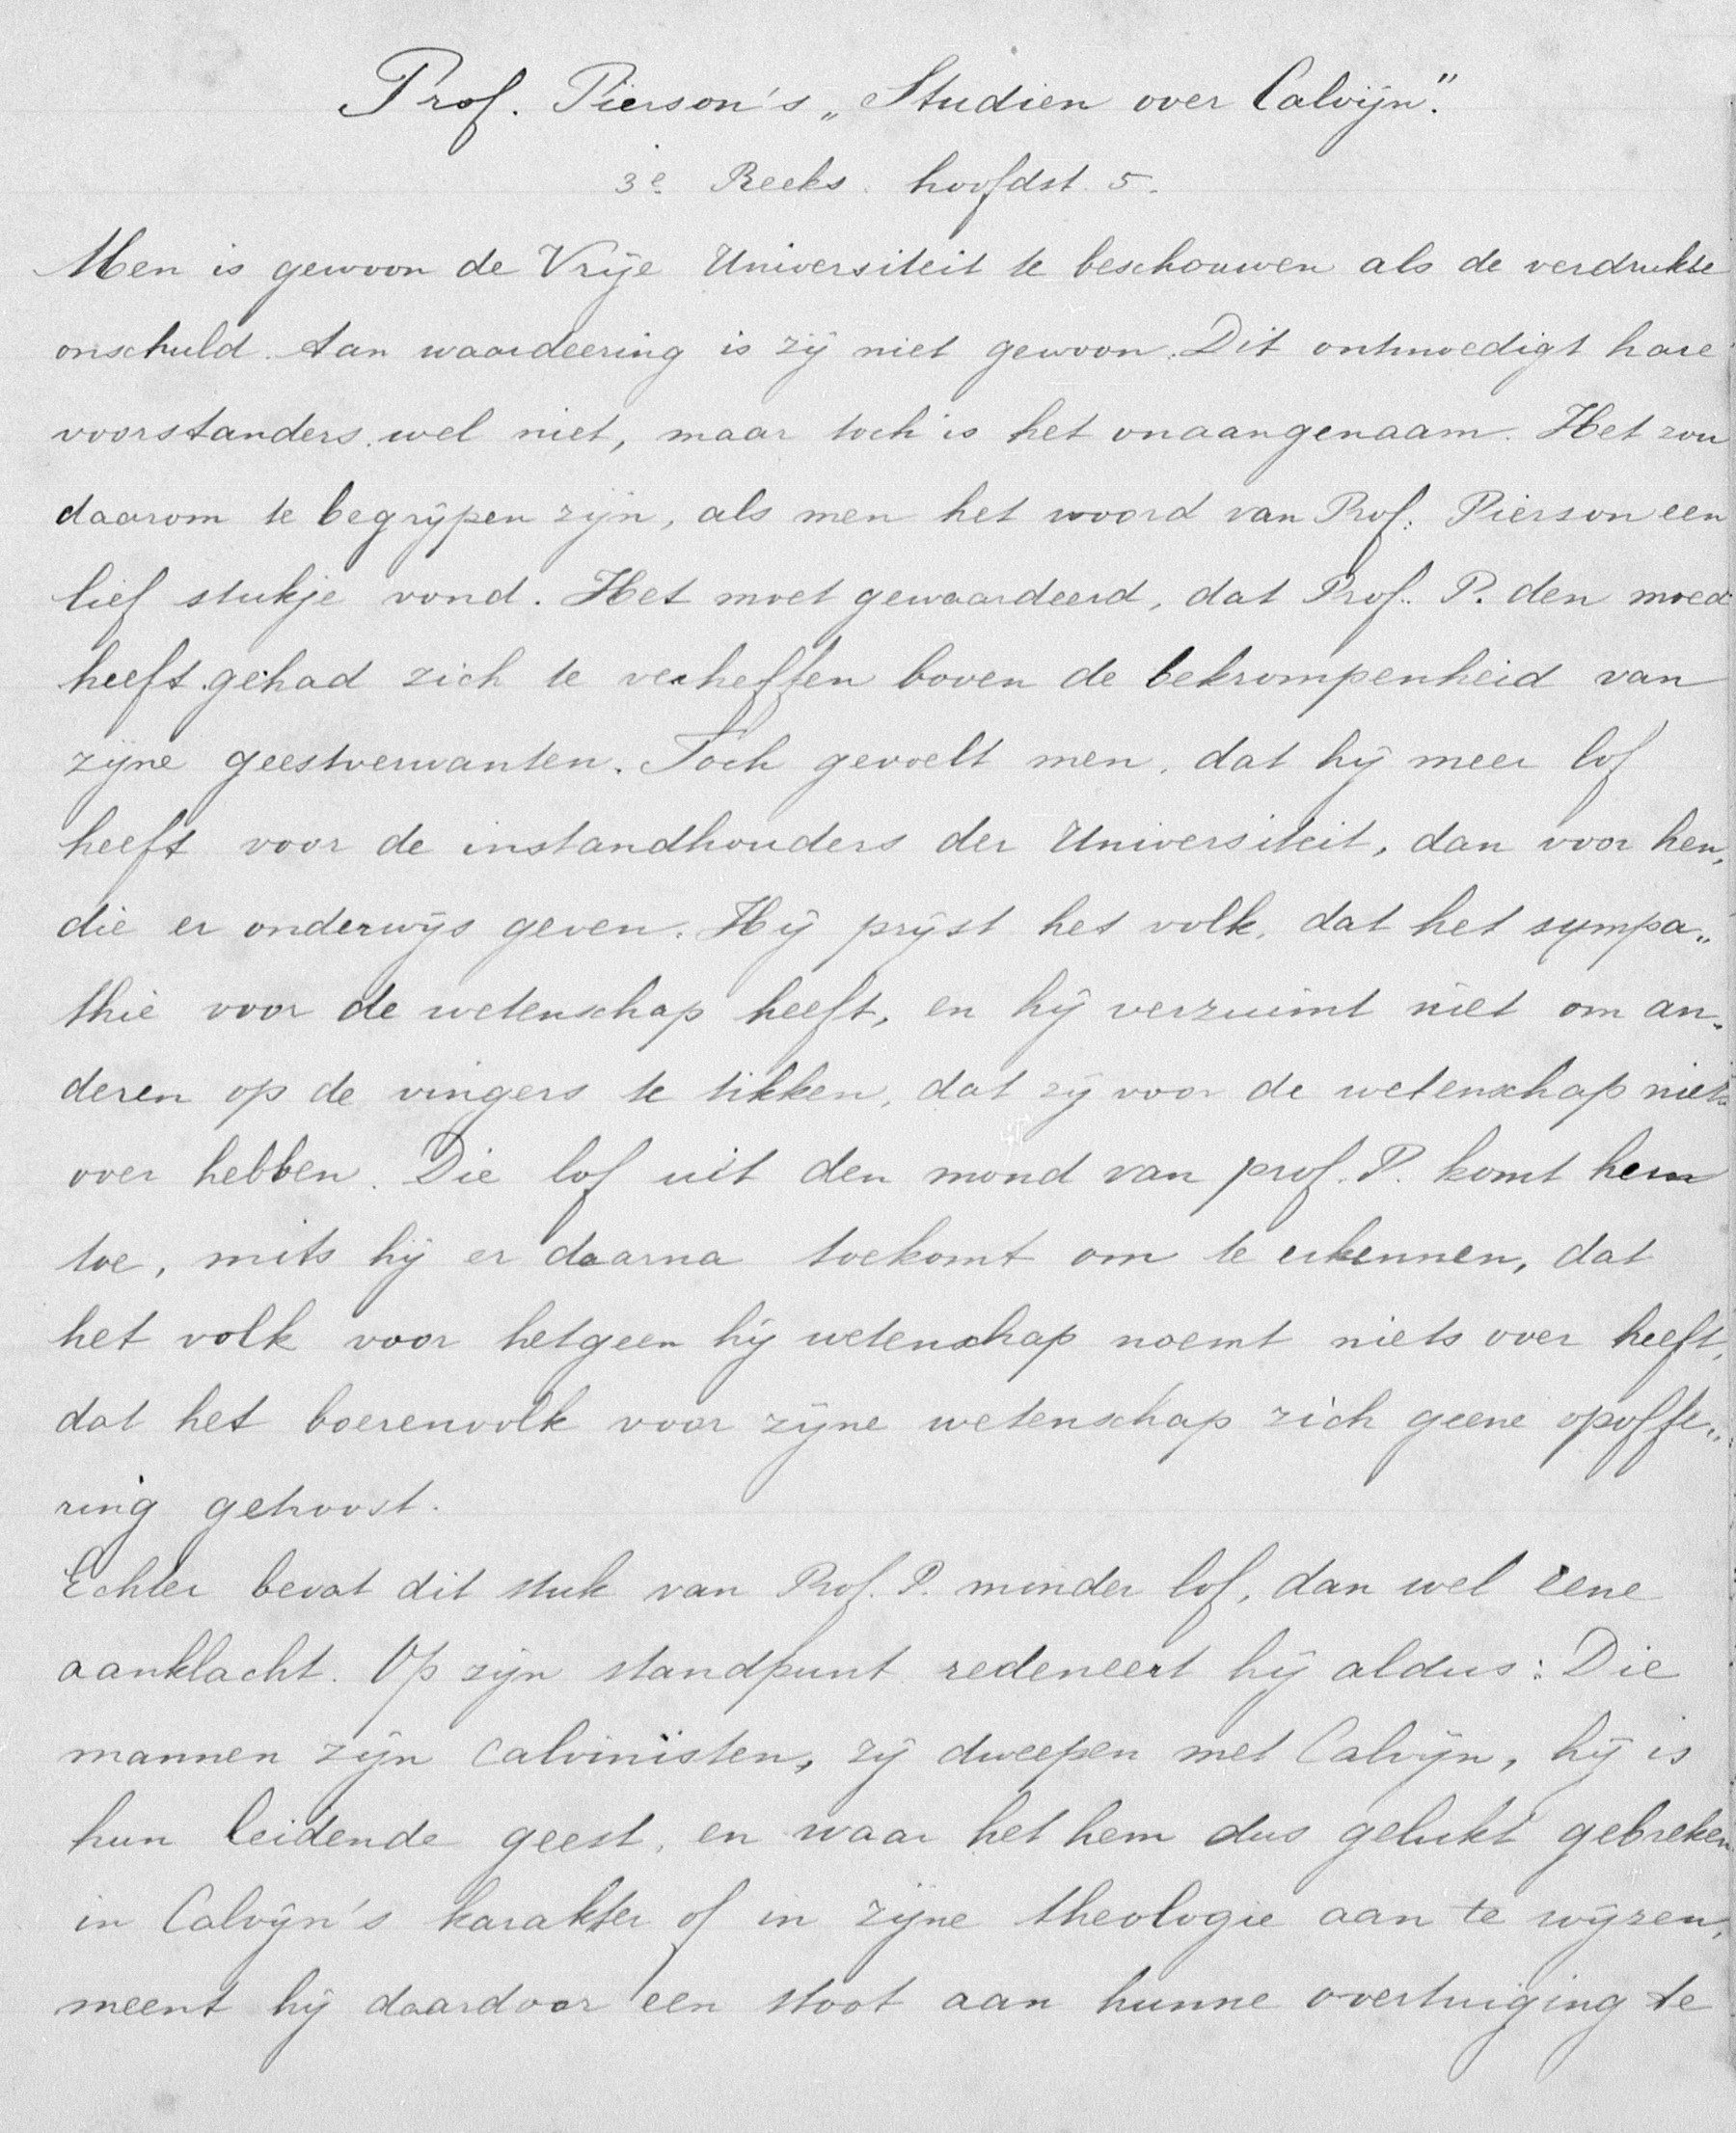 Prof. Pierson's „Studien over Calvijn."
3e Reeks. hoofdst. 5.
Men is gewoon de Vrije Universiteit te beschouwen als de verdrukte
onschuld. Aan waardeering is zij niet gewoon. Dit ontmoedigt hare
voorstanders wel niet, maar toch is het onaangenaam. Het zou
daarom te begrijpen zijn, als men het woord van Prof. Pierson een
lief stukje vond. Het moet gewaardeerd, dat Prof. P. den moed
heeft gehad zich te verheffen boven de bekrompenheid van
zijne geestverwanten. Toch gevoelt men, dat hij meer lof
heeft voor de instandhouders der Universiteit, dan voor hen,
die er onderwijs geven. Hij prijst het volk, dat het sympa„
thie voor de wetenschap heeft, en hij verzuimt niet om an„
deren op de vingers te tikken, dat zij voor de wetenschap niets
over hebben. Die lof uit den mond van prof. P. komt hem
toe, mits hij er daarna toekomt om te erkennen, dat
het volk voor hetgeen hij wetenschap noemt niets over heeft,
dat het boerenvolk voor zijne wetenschap zich geene opoffe„
ring getroost.
Echter bevat dit stuk van Prof. P. minder lof, dan wel eene
aanklacht. Op zijn standpunt redeneert hij aldus: Die
mannen zijn calvinisten, zij dweepen met Calvijn, hij is
hun leidende geest, en waar het hem dus gelukt gebreken
in Calvijn's karakter of in zijne theologie aan te wijzen,
meent hij daardoor een stoot aan hunne overtuiging te